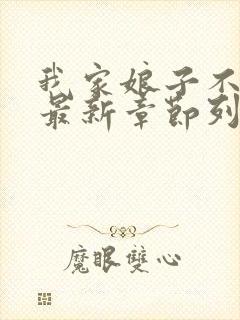 我家娘子不
最新章節列
魔眼雙心